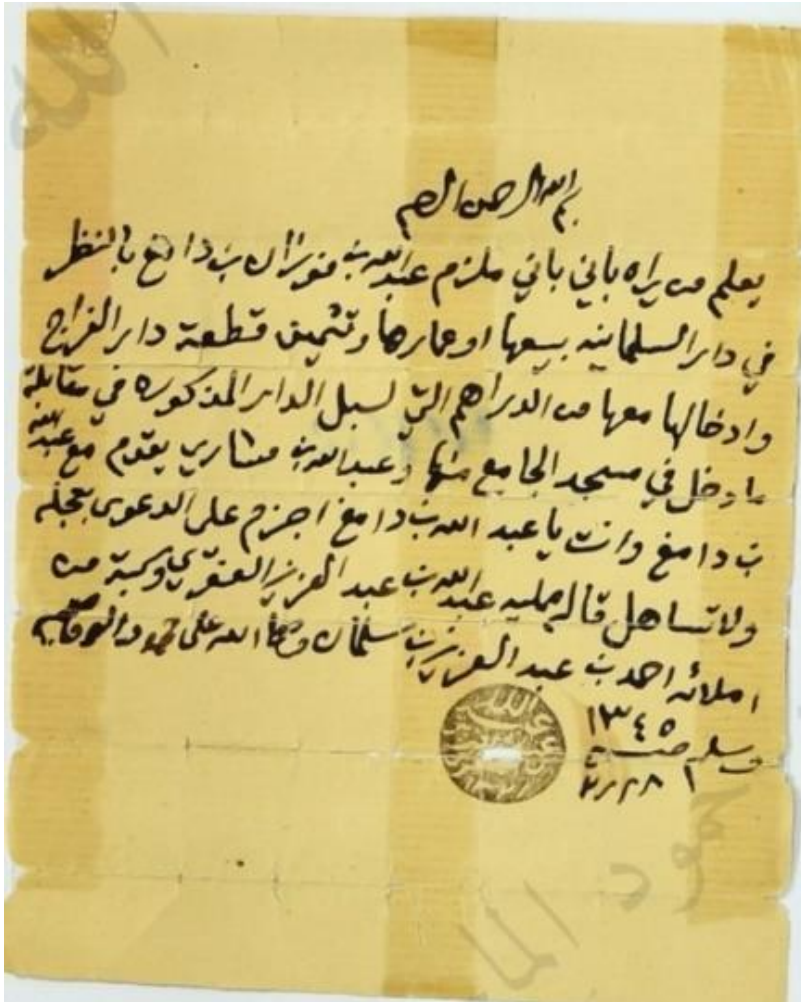 بسم الله الرحمن الرحيم
يعلم من يراه باني باني ملزم عبدالله بن فوزان بن دامغ بالنظر
في دار السلمانيه ببيعها او عمارها وتثمين قطعة دار الفراج
وادخالها معها من الدراهم التي لسبل الدار المذكوره في مقابلة
ما دخل في مسجد الجامع منها وعبدالله بن مشاري يقدم مع عبدالله
بن دامغ وانت يا عبد الله بن دامغ اجزم على الدعوى بعجله
ولا تساهل قاله ممليه عبدالله بن عبد العزيز العنقري وكتبه من
املائه احمد بن عبد العزيز بن سلمان وصلى الله على محمد واله وصحبه
وسلم ١٣٤٥
٢٨